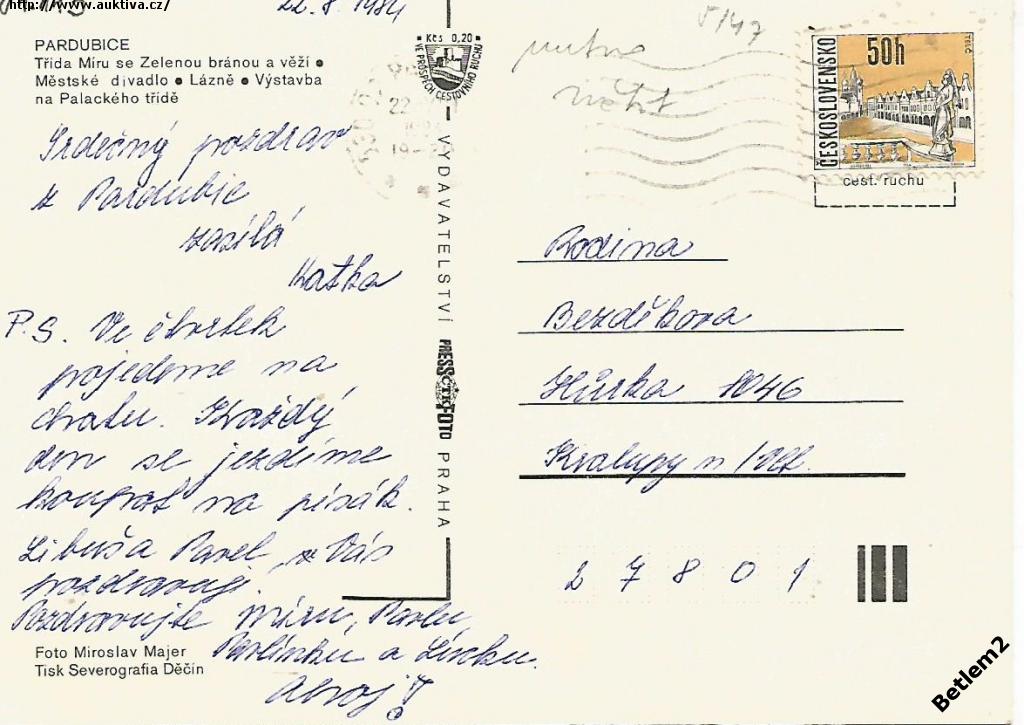 http://www.auktiva.cz/
22.8.1984
PARDUBICE
Třída Míru se Zelenou bránou a věží ●
Městské divadlo ● Lázně ● Výstavba
na Palackého třídě
Srdečný pozdrav
z Pardubic
zasílá
Katka
P.S. Ve čtvrtek
pojedeme na
chatu. Každý
den se jezdíme
koupat na písák.
Libuša Pavel, z Vás
pozdravují.
Pozdravujte Míru, Pavlu,
Pavlínku a Lucku.
Ahoj!
Foto Miroslav Majer
Tisk Severografia Děčín
Kčs 0,20
VE PROSPĚCH CESTOVNÍHO RUCHU
VYDAVATELSTVÍ PRESSFOTO PRAHA
ČTK
5/47
nutno
22
19-20
ČESKOSLOVENSKO
50h
TELČ
cest. ruchu
Rodina
Bezděkova
Hůrka 1046
Kralupy n/Vlt.
27801
Betlem2